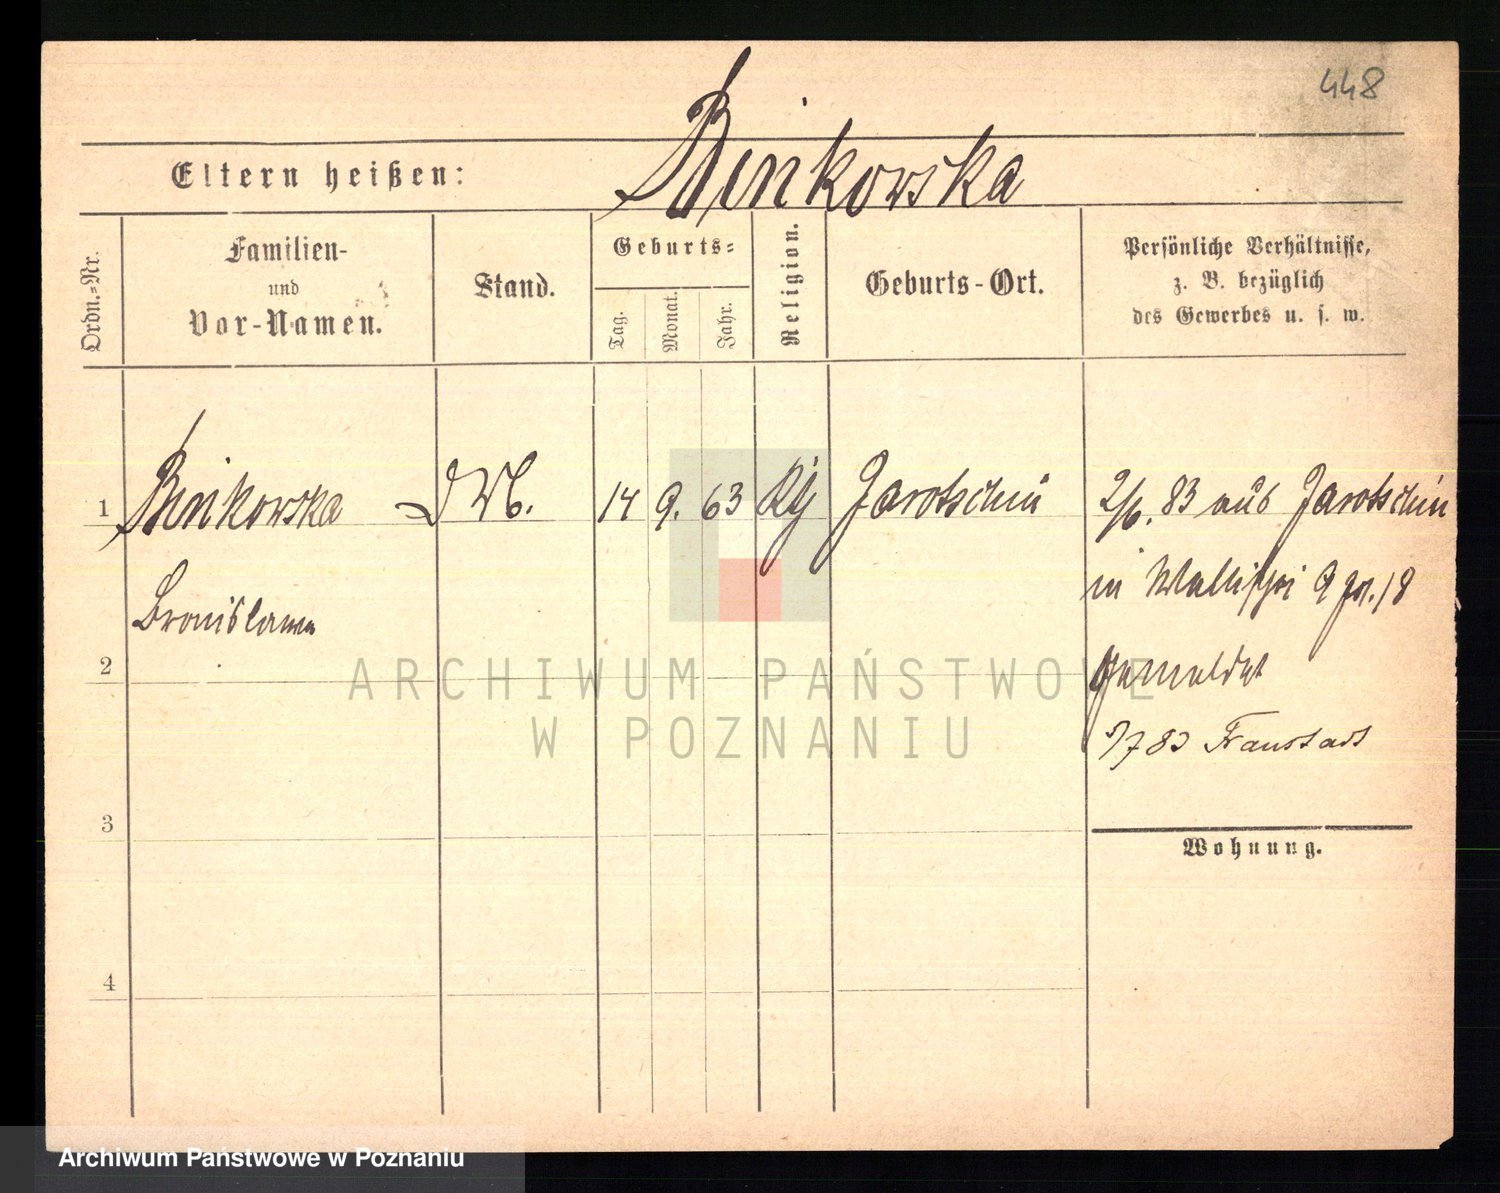 448
Eltern heißen: Binkowska
Ordn.-Nr.
Familien-
und
Vor-Namen.
Stand.
Geburts-
Tag.
Monat.
Jahr.
Religion.
Geburts-Ort.
Persönliche Verhältnisse,
z. B. bezüglich
des Gewerbes u. s. w.
1 Binkowska 14 9. 63 Jarotschin 2/6. 83 aus Jarotschin
Bronislawa
in Wallischei 9
2
gemeldet
83 Fraustadt
3
Wohnung.
4
ARCHIWUM PAŃSTWOWE
W POZNANIU
Archiwum Państwowe w Poznaniu